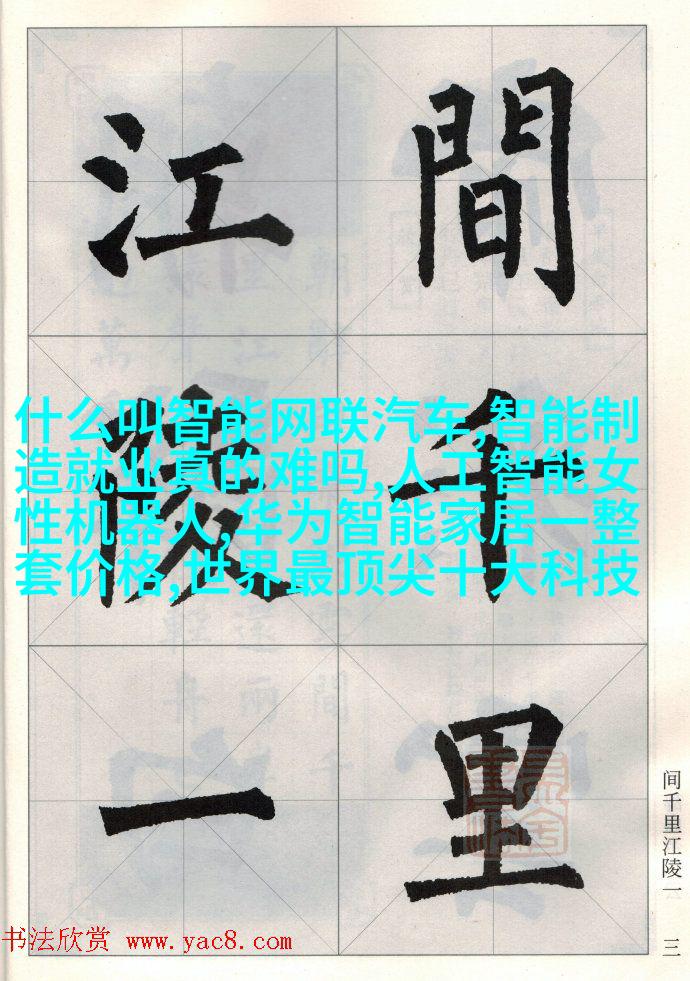 間千里
江陵一
什么叫智能网联汽车,智能制
造就业真的难吗,人工智能女
性机器人,华为智能家居一整
套价格,世界最顶尖十大科技
间千里江陵一
三
书法欣赏 www.yac8.com